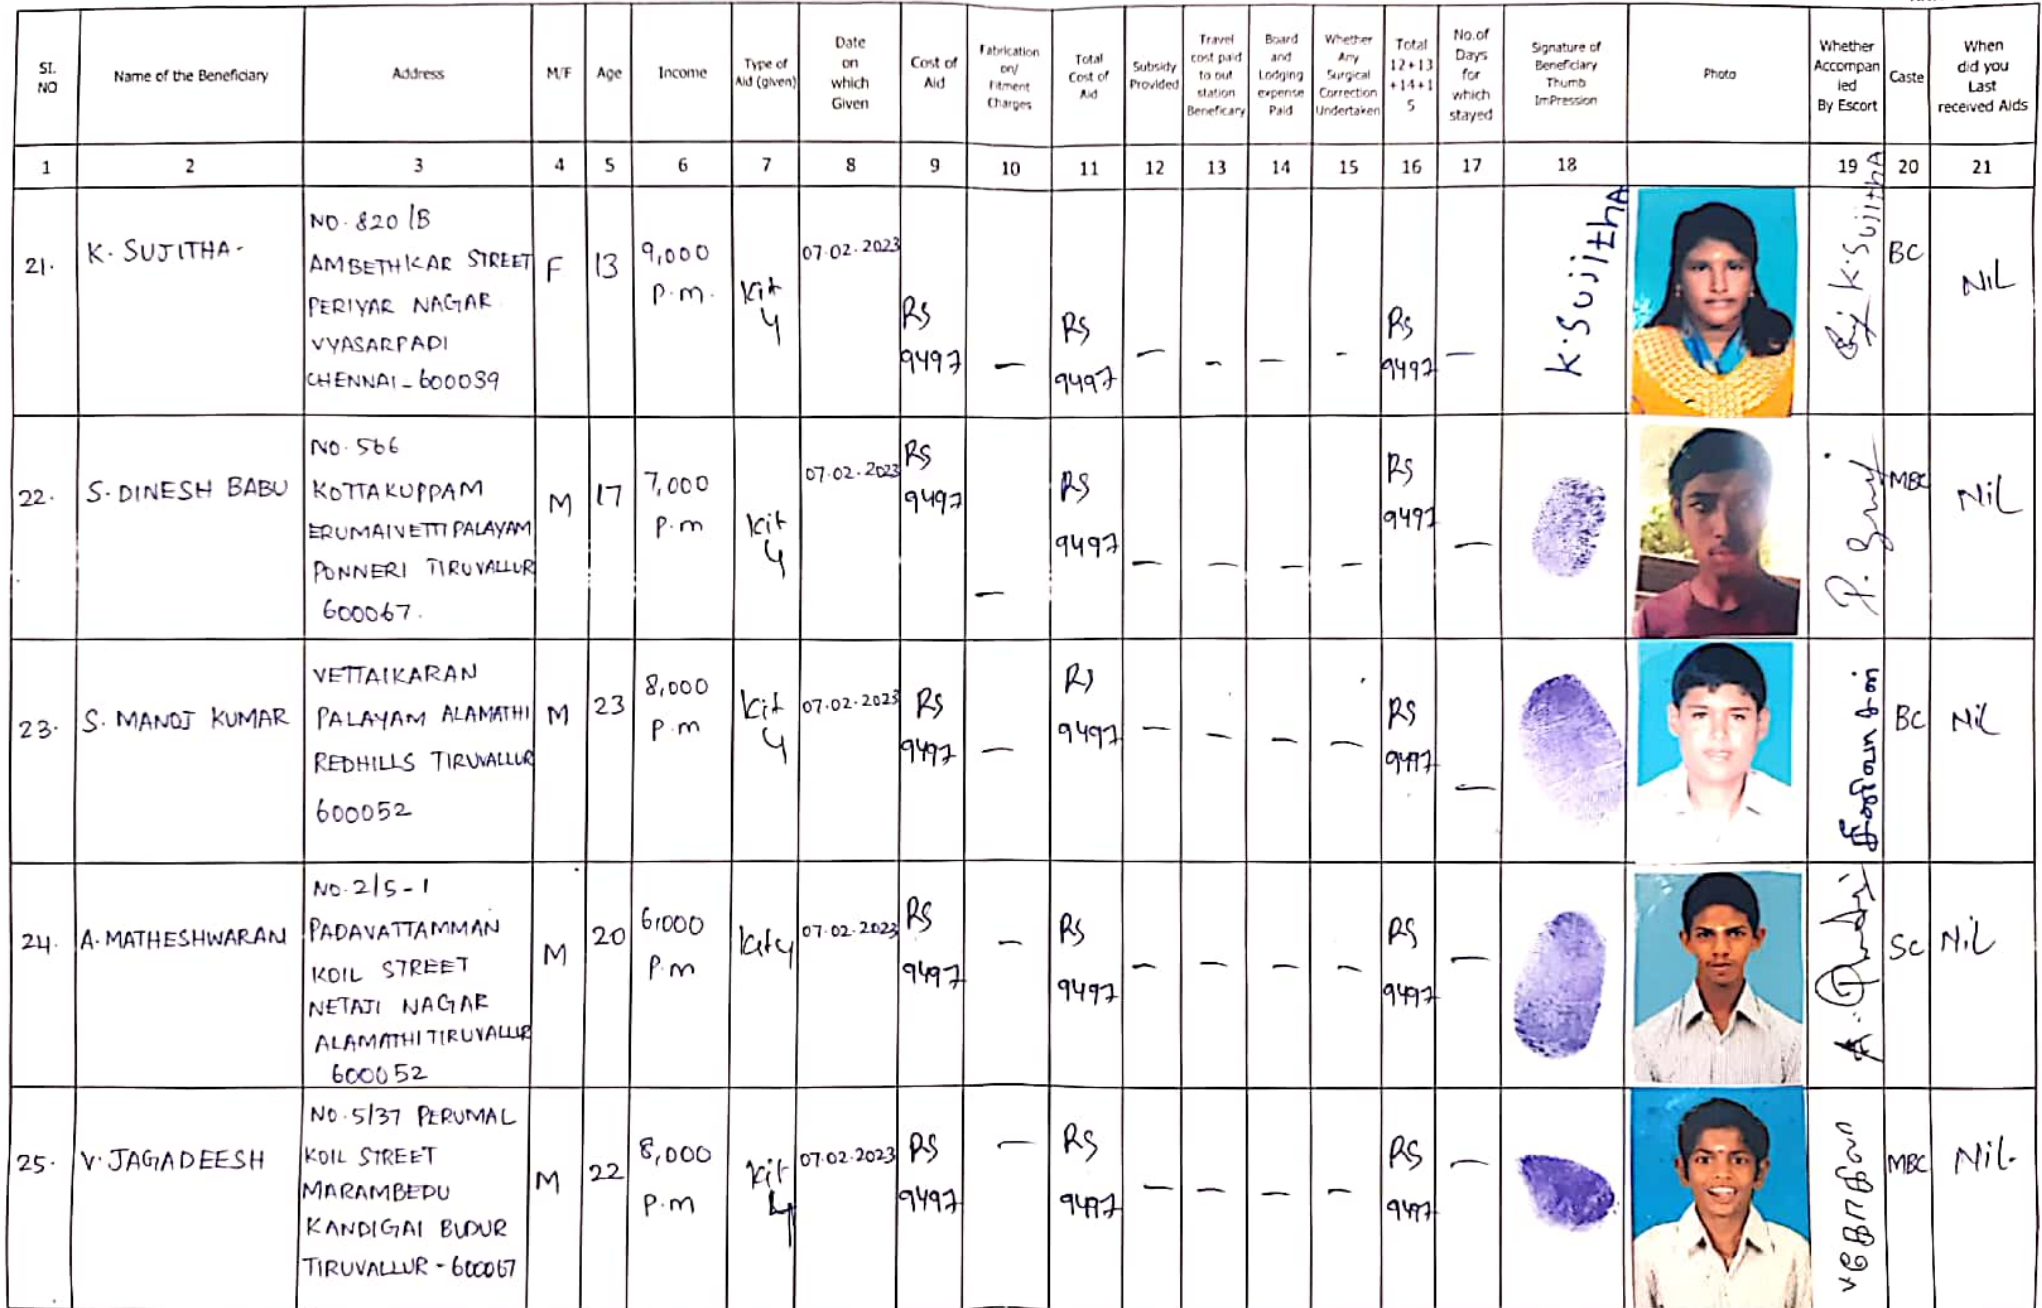 Sl. NO
Name of the Beneficiary
Address
M/F
Age
Income
Type of
Aid (given)
Date
on
which
Given
Cost of
Aid
Fabrication
on/
Fitment
Charges
Total
Cost of
Aid
Subsidy
Provided
Travel
cost paid
to out
station
Beneficary
Board
and
Lodging
expense
Paid
Whether
Any
Surgical
Correction
Undertaken
Total
12+13
+14+1
5
No.of
Days
for
which
stayed
Signature of
Beneficiary
Thumb
ImPression
Photo
Whether
Accompan
ied
By Escort
Caste
When
did you
Last
received Aids
1 2 3 4 5 6 7 8 9 10 11 12 13 14 15 16 17 18 19 20 21
21.
K. SUJITHA.
NO. 820/B
AMBETHKAR STREET
PERIYAR NAGAR
VYASARPADI
CHENNAI - 600039
F
13
9,000
P.m.
Kit
4
07.02.2023
Rs
9497
—
Rs
9497
— — — —
Rs
9497
—
K. SujithA
K. SujithA
BC
NIL
22.
S. DINESH BABU
NO. 566
KOTTAKUPPAM
ERUMAIVETTIPALAYAM
PONNERI TIRUVALLUR
600067.
M
17
7,000
P.m
Kit
4
07.02.2023
Rs
9497
—
Rs
9497
— — — —
Rs
9497
—
MBC
NiL
23.
S. MANOJ KUMAR
VETTAIKARAN
PALAYAM ALAMATHI
REDHILLS TIRUVALLUR
600052
M
23
8,000
P.m
Kit
4
07.02.2023
Rs
9497
—
Rs
9497
— — — —
Rs
9497
—
BC
NiL
24.
A. MATHESHWARAN
NO. 2/5-1
PADAVATTAMMAN
KOIL STREET
NETAJI NAGAR
ALAMATHI TIRUVALLUR
600052
M
20
6,000
P.m
Kit 4
07.02.2023
Rs
9497
—
Rs
9497
— — — —
Rs
9497
—
SC
NiL
25.
V. JAGADEESH
NO. 5/37 PERUMAL
KOIL STREET
MARAMBEDU
KANDIGAI BUDUR
TIRUVALLUR - 600067
M
22
8,000
P.m
Kit
4
07.02.2023
Rs
9497
—
Rs
9497
— — — —
Rs
9497
—
MBC
NiL.